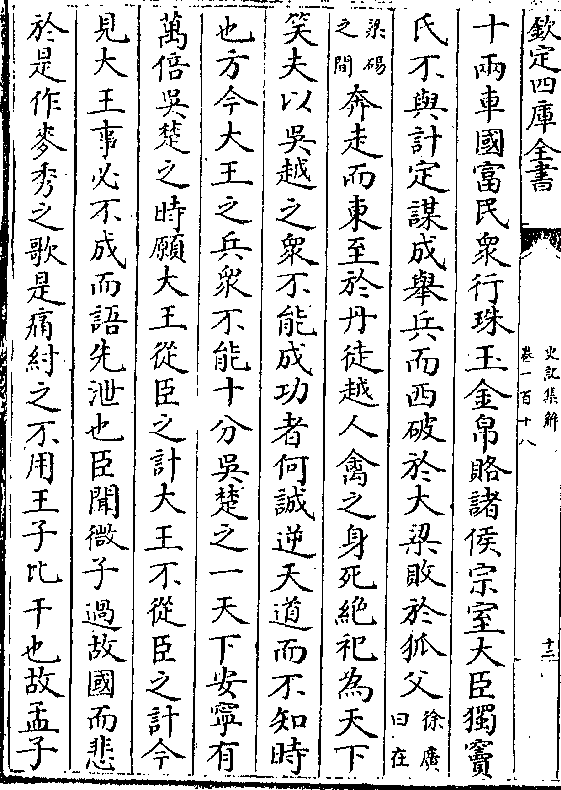 欽定四庫全書
史記集解
卷一百十八
十三
十兩車國富民衆行珠玉金帛賂諸侯宗室大臣獨竇
氏不與計定謀成舉兵而西破於大梁敗於狐父徐廣曰在
梁碭之間奔走而東至於丹徒越人禽之身死絶祀為天下
笑夫以吳越之衆不能成功者何誠逆天道而不知時
也方今大王之兵衆不能十分吳楚之一天下安寧有
萬倍吳楚之時願大王從臣之計大王不從臣之計今
見大王事必不成而語先泄也臣聞微子過故國而悲
於是作麥秀之歌是痛紂之不用王子比干也故孟子